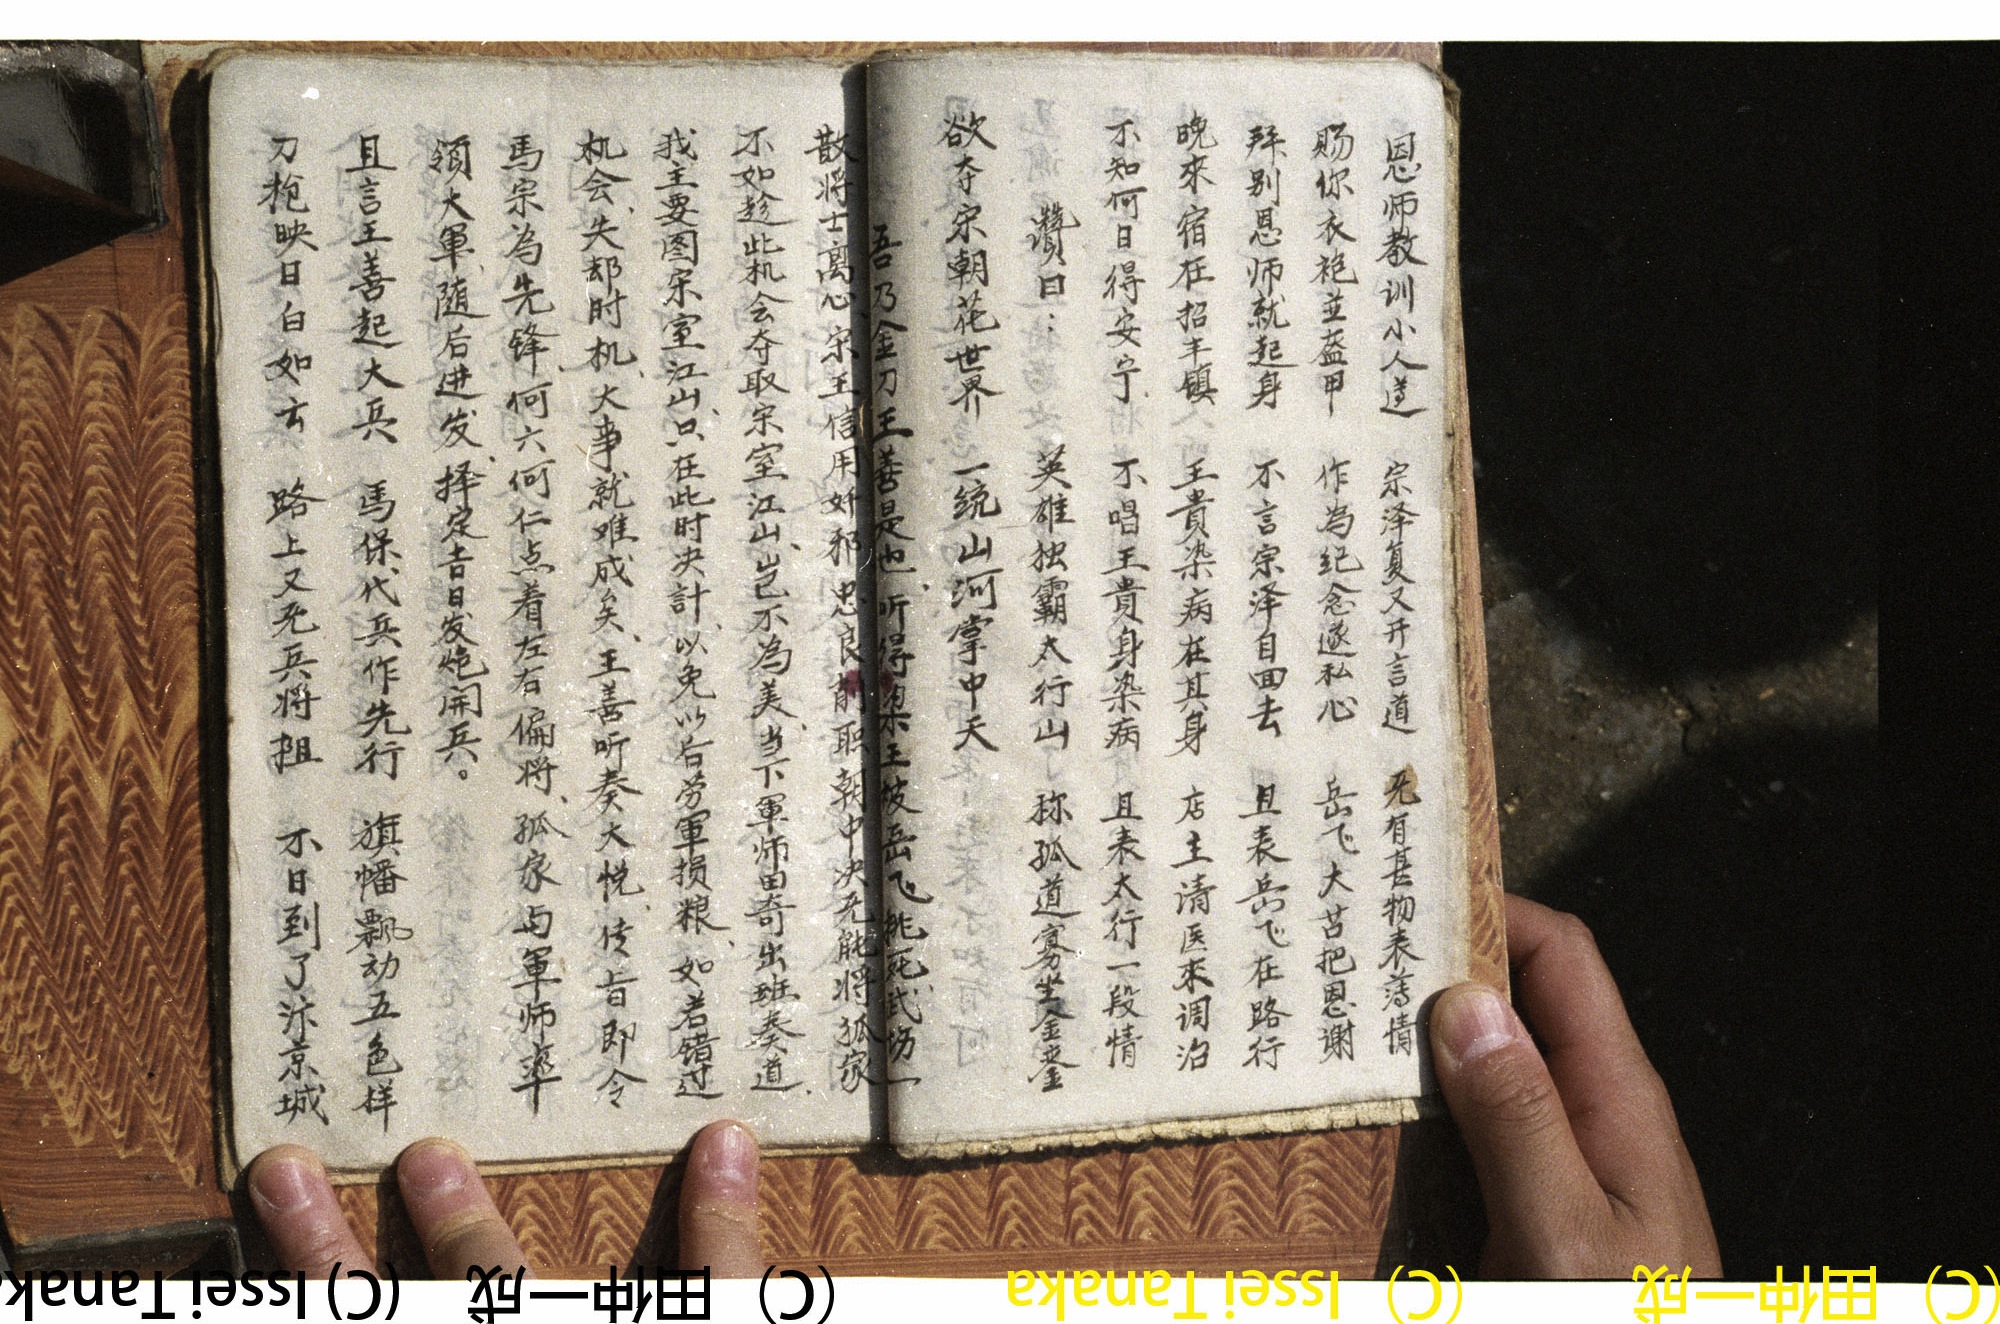 恩师教训小人遵　宗泽复又开言道　无有甚物表薄情
赐你衣袍並盔甲　作为纪念遂私心　岳飞大苦把恩谢
拜别恩师就起身　不言宗泽自回去　且表岳飞在路行
晚來宿在招丰镇　王貴染病在其身　店主清医來调治
不知何日得安宁　不唱王貴身染病　且表太行一段情
讚曰：英雄独霸太行山　称孤道寡坐金銮
欲夺宋朝花世界　一统山河掌中天
吾乃金刀王善是也、听得梁王被岳飞挑死武场一
散将士离心、宋王信用奸邪忠良前职、朝中决无能将孤家
不如趁此机会夺取宋室江山、岂不為美、当下軍师田奇出班奏道、
我主要图宋室江山、只在此时决計、以免以后劳軍损粮、如若错过
机会、失却时机、大事就难成矣、王善听奏大悦、传旨即令
馬宗為先锋、何六何仁点着左右偏将、孤家与軍师率
领大軍、随后进发、择定吉日发炮開兵。
且言王善起大兵　馬保代兵作先行　旗幡飘动五色样
刀枪映日白如云　路上又无兵将阻　不日到了汴京城
(C) Issei Tanaka (C) 田仲一成 (C) Issei Tanaka (C) 田仲一成